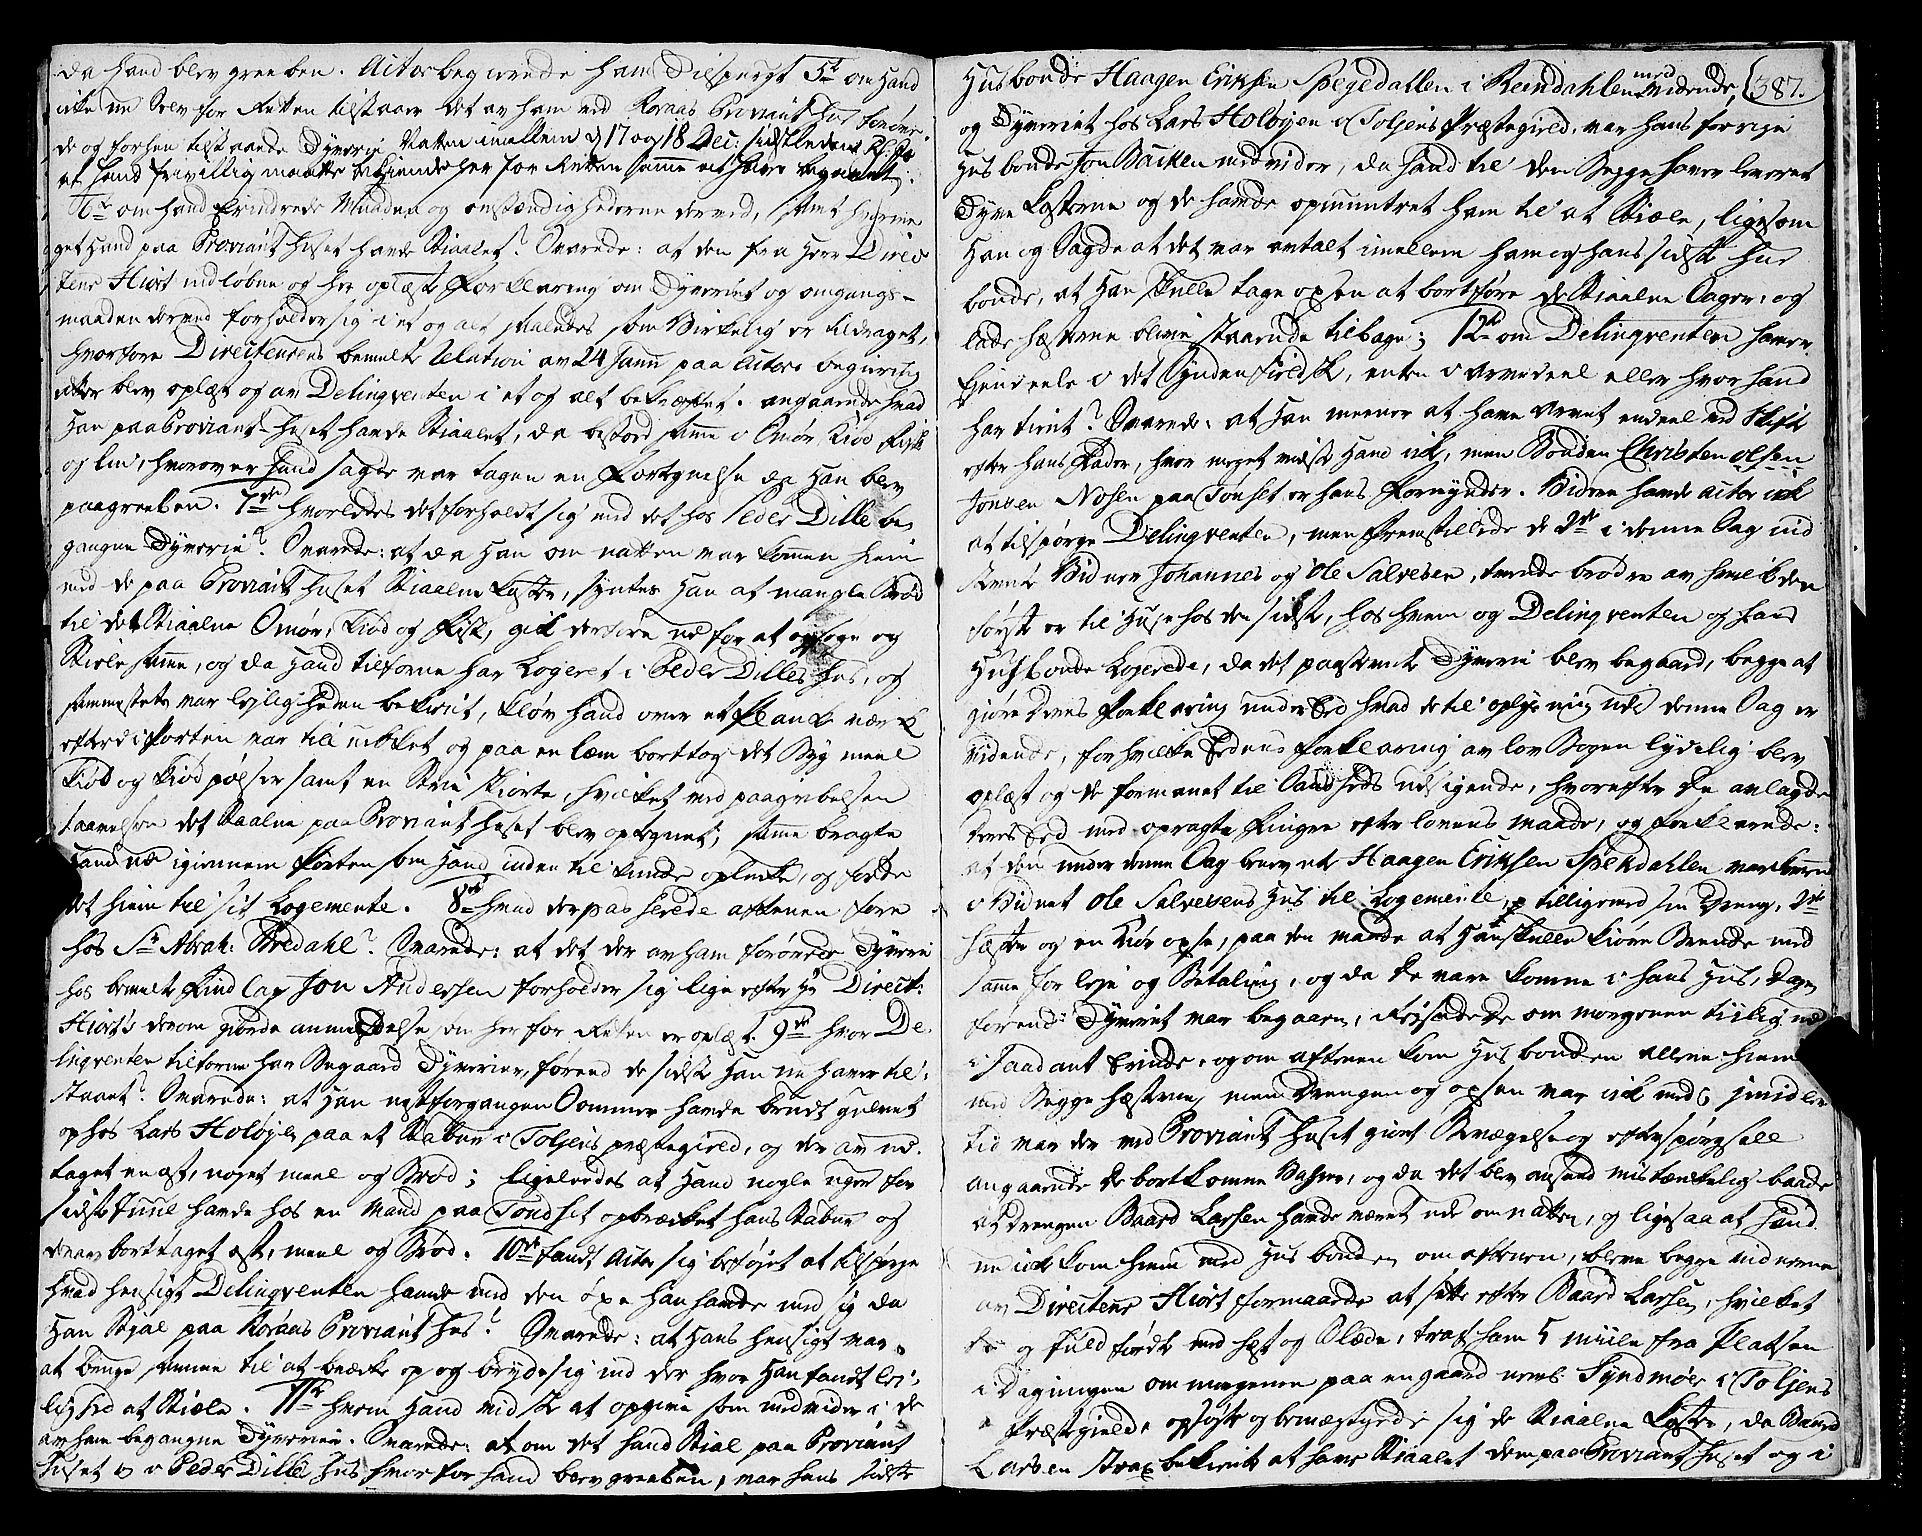 da hand blev greeben. Actor begierede ham tilspurgt 5te om Hand
ikke nu Selv for Retten tilstaaer det av ham ved Roraas Proviant Huus forøve-
de og forhen tilstaaede Dyverie Natten imellem d 17 og 18 Dec: sidstleden
at Hand frivillig maatte bekiende her for Retten samme at have begaaet.
6te om hand Erindrede Maaden og omstændighederne derved, samt hvor me-
get Hand paa Proviant Huset havde Stiaalet? Svarede: at den fra Herr Direc
teur Hiort indløbne og her oplæste Forklaring om Dyveriet og omgangs-
maaden derved forholder sig i et og alt saaledes som Virkelig er tildraget,
hvorfore Directeurens bemelte Relation av 24 Janv paa Actors begiering
atter blev oplæst og av Delinqventen i et og alt bekræftet. angaaende hvad
Han paa Proviant Huset havde Stiaalet, da bestod samme i Smør, Kiød, Fisk
og Lin, hvorover Hand sagde var tagen en Fortegnelse da Han blev
paagreeben. 7de hvorledes det forholdt sig med det hos Peder Dille be-
gangne Dyverie? Svarede: at da Han om natten var kommen hiem
med de paa Proviant Huset Stiaalne Koster, syntes Han at mangle Brød
til det Stiaalne Smør, Kiød og Fisk, gik derfore ud for at opsøge og
Stiele samme, og da Hand tilforne har Logeret i Peder Dilles Huus, og
sammestets var lejligheden bekient, kløv Hand over et Planke værk
efterdi Porten var tillukket og paa en læm borttog det Byg meel
Kiød og Kiød pølser samt en Strie Skiorte, hvilket ved paagribelsen
saavelsom det Staalne paa Proviant Huset blev optegnet, samme bragte
Hand ud igiennem Porten som Hand inden til kunde oplukke, og førde
det hiem til sit Logemente. 8de hvad der passerede aftenen føre
hos Sr Abrah: Bredahl? Svarede: at det der av ham forøvede Dyverie
hos bemelte Find Lap Jon Andersen forholder sig lige efter Hr Direct:
Hiorts derom giorde anmeldelse som her for Retten er oplæst. 9de hvor De-
linqventen tilforne har Begaaed Dyverier, førend de sidste Han nu haver til-
staaet? Svarede: at Han nestforgangen Sommer havde brudt gulvet
op hos Lars Holøyen paa et Stabur i Toljens præstegield, og der av ud-
taget en ost, noget meel og Brød; ligeledes at Hand nogle uger for
sidste Juul havde hos en Mand paa Tondset opbrækket hans Stabur og
derav borttaget ost, meel og Brød. 10de fandt Actor sig beføjet at tilspørge
hvad hensigt Delinqventen havde med den øxe han havde med sig da
Han Stjal paa Roraas Proviant Huus? Svarede: at Hans hensigt var
at bruge samme til at brække op og bryde sig ind der hvor Han fandt lei-
lighed at Stiele. 11te hvem Hand vidste at opgive som medvider i de
av ham begangne Dyverier. Svarede: at om det hand Stial paa Proviant
Huset og i Peder Dilles Huus hvorfor hand blev greeben, var hans sidste
387.
Husbonde Haagen Eriksen Spegedallen i Reendahlen med vidende,
og Dyveriet hos Lars Holøyen i Toljens Præstegield, var hans forrige
Husbonde Jon Backen medvider, da Hand til dem Begge haver leveret
Dyve Kosterne og de havde opmuntret ham til at Stiele, ligesom
Han og Sagde at det var avtalt imellem ham og hans sidste Huus
bonde, at Han skulle tage oxsen at bortføre de Stiaalne Sager, og
lade hæstene blive staaende tilbage; 12te om Delinqventen haver
Ejendeele i det Syndenfieldske, enten i Arvedeel eller hvor hand
har tient? Svarede: at Han meener at have Arvet endeel ved Skifte
efter hans Fader, hvor meget vidste Hand ikke, men Bonden Christen Olsen
Jonsen Nosen paa Tønset er hans Formynder. Videre havde Actor ikke
at tilspørge Delinqventen, men fremstillede de 2de i denne Sag ind
stevnte Vidner Johannes og Ole Salvesen, tvende brødre av hvilke den
første er til Huse hos den sidste, hos hvem og Delinqventen og hans
Husbonde Logerede, da det paastevnte Dyverie blev begaaed, begge at
giøre deres Forklaring under Eed hvad de til oplysning udi denne Sag er
vidende, forhvilke Edens Forklaring av Lov Bogen lydelig blev
oplæst og de formanet til Sandheds udsigende, hvorefter de avlagde
deres Eed med opragte Fingre efter lovens maade, og forklarede:
at den under denne Sag benevnte Haagen Eriksen Spekdahlen var kommen
i Vidnet Ole Salvesens Huus til Logemente, tilligemed sin Dreng, 2de
hæster og en Kiør oxse, paa den maade at Han skulle kiøre Brende med
samme for leje og Betaling, og da de vare komne i hans Huus, Dagen
førend Dyveriet var begaaen, Reisede de om morgenen tiilig ud
i Saadant Erinde, og om aftenen kom Husbonden allene hiem
med Begge hæstene, men Drengen og oxsen var ikke med; imidler
tid var der ved Proviant Huset giort Bevægelse og efterspørgsell
angaaende de bortkomne Vahre, og da det blev anseed mistænkelig baade
at Drengen Baard Larsen havde været ude om natten, og ligesaa at hand
nu ikke kom hiem med Husbonden om aftenen, bleve begge vidnerne
av Directeur Hiort formaaede at sætte efter Baard Larsen, hvilket
de og fuldførte med hest og Slæde, traf ham 5 miile fra Pladsen
i Dagningen om morgenen paa en gaard navnl: Syndmør i Toljens
Præstegield, opsøgte og bemægtigede sig de Stiaalne Koster, da Baard
Larsen strax bekiendte at have Stiaalet dem paa Proviant Huset og i